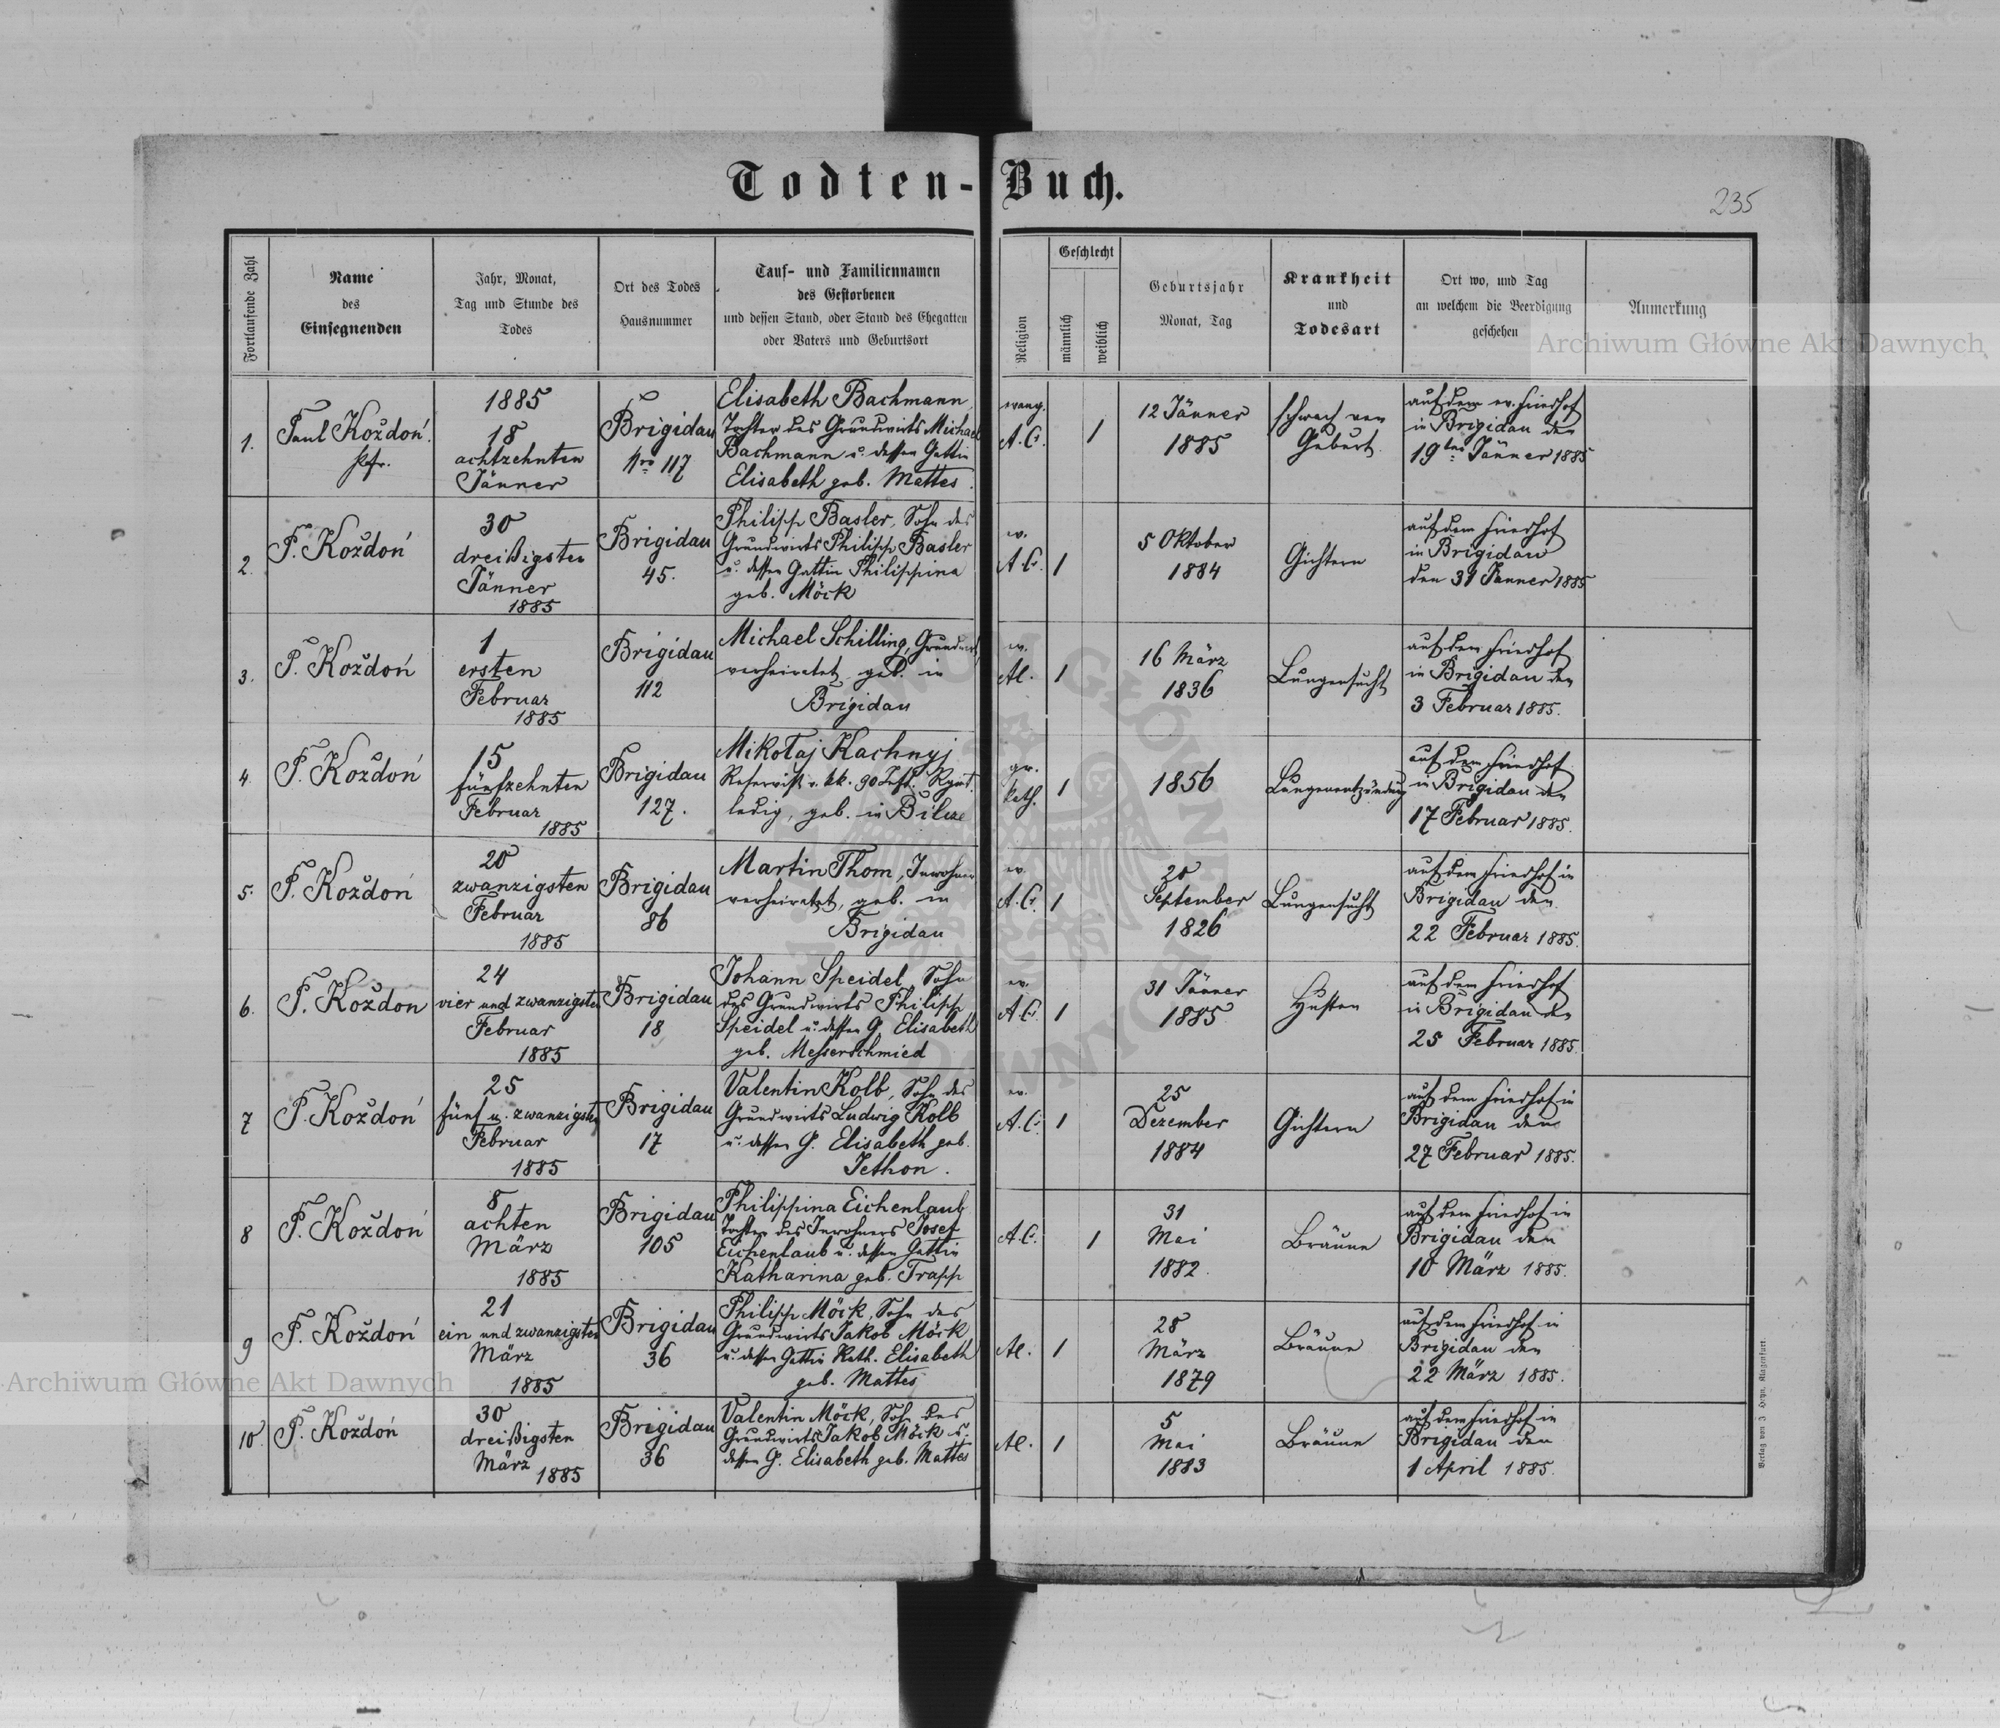 Todten-Buch.
235
Fortlaufende Zahl
Name
des
Einsegnenden
Jahr, Monat,
Tag und Stunde des
Todes
Ort des Todes
Hausnummer
Tauf- und Familiennamen
des Gestorbenen
und dessen Stand, oder Stand des Ehegatten
oder Vaters und Geburtsort
Religion
Geschlecht
männlich
weiblich
Geburtsjahr
Monat, Tag
Krankheit
und
Todesart
Ort wo, und Tag
an welchem die Beerdigung
geschehen
Anmerkung
1.
Paul Koždoń.
Pfr.
1885
18
achtzehnten
Jänner
Brigidau
Nro 117
Elisabeth Bachmann,
Tochter des Grundwirts Michael
Bachmann u. dessen Gattin
Elisabeth geb. Mattes.
evang.
A.C.
1
12 Jänner
1885
schwach von
Geburt
auf dem ev. Friedhof
in Brigidau den
19ten Jänner 1885
2.
P. Koždoń
30
dreißigsten
Jänner
1885
Brigidau
45.
Philipp Basler, Sohn des
Grundwirts Philipp Basler
u. dessen Gattin Philippina
geb. Möck
ev.
A.C.
1
5 Oktober
1884
Gichtern
auf dem Friedhof
in Brigidau
den 31 Jänner 1885
3.
P. Koždoń
1
ersten
Februar
1885
Brigidau
112
Michael Schilling, Grundwirt,
verheiratet geb. in
Brigidau
ev.
AC.
1
16 März
1836
Lungensucht
auf dem Friedhof
in Brigidau den
3 Februar 1885.
4.
P. Koždoń
15
fünfzehnten
Februar
1885
Brigidau
127.
Mikołaj Kachnyj
Reservist v. kk. 90 Inft. Rgmt.
ledig, geb. in Bilcze
gr.
kath.
1
1856
Lungenentzündung
auf dem Friedhof
in Brigidau den
17 Februar 1885.
5.
P. Koždoń
20
zwanzigsten
Februar
1885
Brigidau
86
Martin Thom, Inwohner
verheiratet, geb. in
Brigidau
ev.
A.C.
1
20
September
1826
Lungensucht
auf dem Friedhof in
Brigidau den
22 Februar 1885.
6.
P. Koždon
24
vier und zwanzigsten
Februar
1885
Brigidau
18
Johann Speidel, Sohn
des Grundwirts Philipp
Speidel u. dessen G. Elisabeth
geb. Messerschmied
ev.
A.C.
1
31 Jänner
1885
Husten
auf dem Friedhof
in Brigidau den
25 Februar 1885.
7
P. Koždoń
25
fünf u. zwanzigsten
Februar
1885
Brigidau
17
Valentin Kolb, Sohn des
Grundwirts Ludwig Kolb
u. dessen G. Elisabeth geb.
Jethon.
ev.
A.C.
1
25
Dezember
1884
Gichtern
auf dem Friedhof in
Brigidau den
27 Februar 1885.
8
P. Koždoń
8
achten
März
1885
Brigidau
105
Philippina Eichenlaub
Tochter des Inwohners Josef
Eichenlaub u. dessen Gattin
Katharina geb. Trapp
A.C.
1
31
Mai
1882.
Bräune
auf dem Friedhof in
Brigidau den
10 März 1885.
9
P. Koždoń
21
ein und zwanzigsten
März
1885
Brigidau
36
Philipp Möck, Sohn des
Grundwirts Jakob Möck
u. dessen Gattin Kath. Elisabeth
geb. Mattes
AC.
1
28
März
1879
Bräune
auf dem Friedhof in
Brigidau den
22 März 1885.
10.
P. Koždoń
30
dreißigsten
März
1885
Brigidau
36
Valentin Möck, Sohn des
Grundwirts Jakob Möck u.
dessen G. Elisabeth geb. Mattes
AC.
1
5
Mai
1883
Bräune
auf dem Friedhof in
Brigidau den
1 April 1885.
Verlag von J. Heyn, Klagenfurt.
Archiwum Główne Akt Dawnych
Archiwum Główne Akt Dawnych